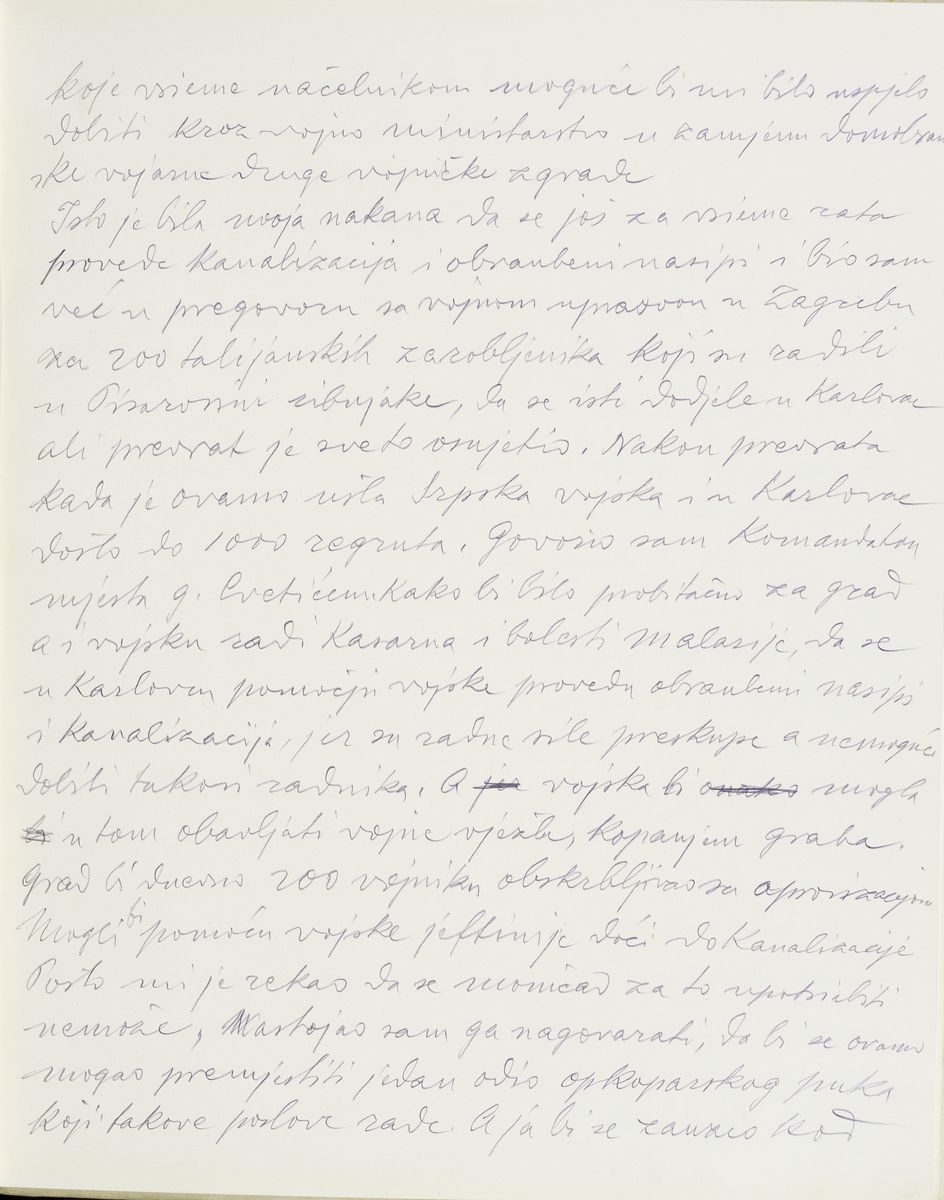 koje vrieme načelnikom moguće bi mi bilo uspjelo
dobiti kroz vojno ministarstvo u zamjenu domobran
ske vojarne druge vojničke zgrade
Isto je bila moja nakana da se još za vrieme rata
provede kanalizacija i obranbeni nasipi i bio sam
već u pregovoru sa vojnom upravom u Zagrebu
za 200 talijanskih zarobljenika koji su radili
u Pisarovini , da se isti dodjele u Karlovac
ali prevrat je sve to osujetio. Nakon prevrata
kada je ovamo ušla Srpska vojska i u Karlovac
došlo do 1000 regruta. Govorio sam Komandatom
mjesta g. Cvetićem. Kako bi bilo probitačno za grad
a i vojsku radi Kasarna i bolesti Malarije, da se
u Karlovcu pomoćju vojske provedu obranbeni nasipi
i Kanalizacija, jer su radne sile preskupe a nemoguće
dobiti takovi radnika. A je vojska bi onako mogla
bi u tom obavljati vojne vježbe, kopanjem graba.
Grad bi dnevno 200 vojniku obskrbljivao sa aprovizacijom
Mogli bi pomoću vojske jeftinije doći do Kanalizacije
Pošto mi je rekao da se momčad za to upotriebiti
nemože, Nastojao sam ga nagovarati, da bi se ovamo
mogao premjestiti jedan odio opkoparskog puka
koji takove poslove rade. A ja bi se zauzeo kod